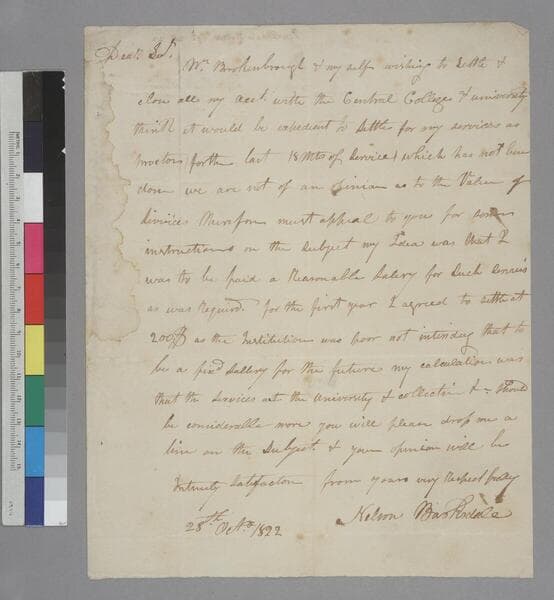 Dear Sir.
Wm Brockenbrough & my self wishing to Settle &
close all my acct. with the Central College & university
think it would be expedient to Settle for my services as
proctor (forth last 18 Mts of Service) which has not been
done we are not of an opinion as to the Value of
Services therefore must appeal to you for some
instructions on the Subject my Idea was that I
was to be paid a Reasonable Salery for Such Services
as was Required. for the first year I agreed to settle at
200$ as the Institution was poor not intending that to
be a fixd Sallery for the future my calculation was
that the Services at the University & collection &c Should
be considerable more you will please drop me a
line on the Subject & your opinion will be
Satisfaction from yours very Respectfully
28th Octo. 1822 Nelson Barksdale